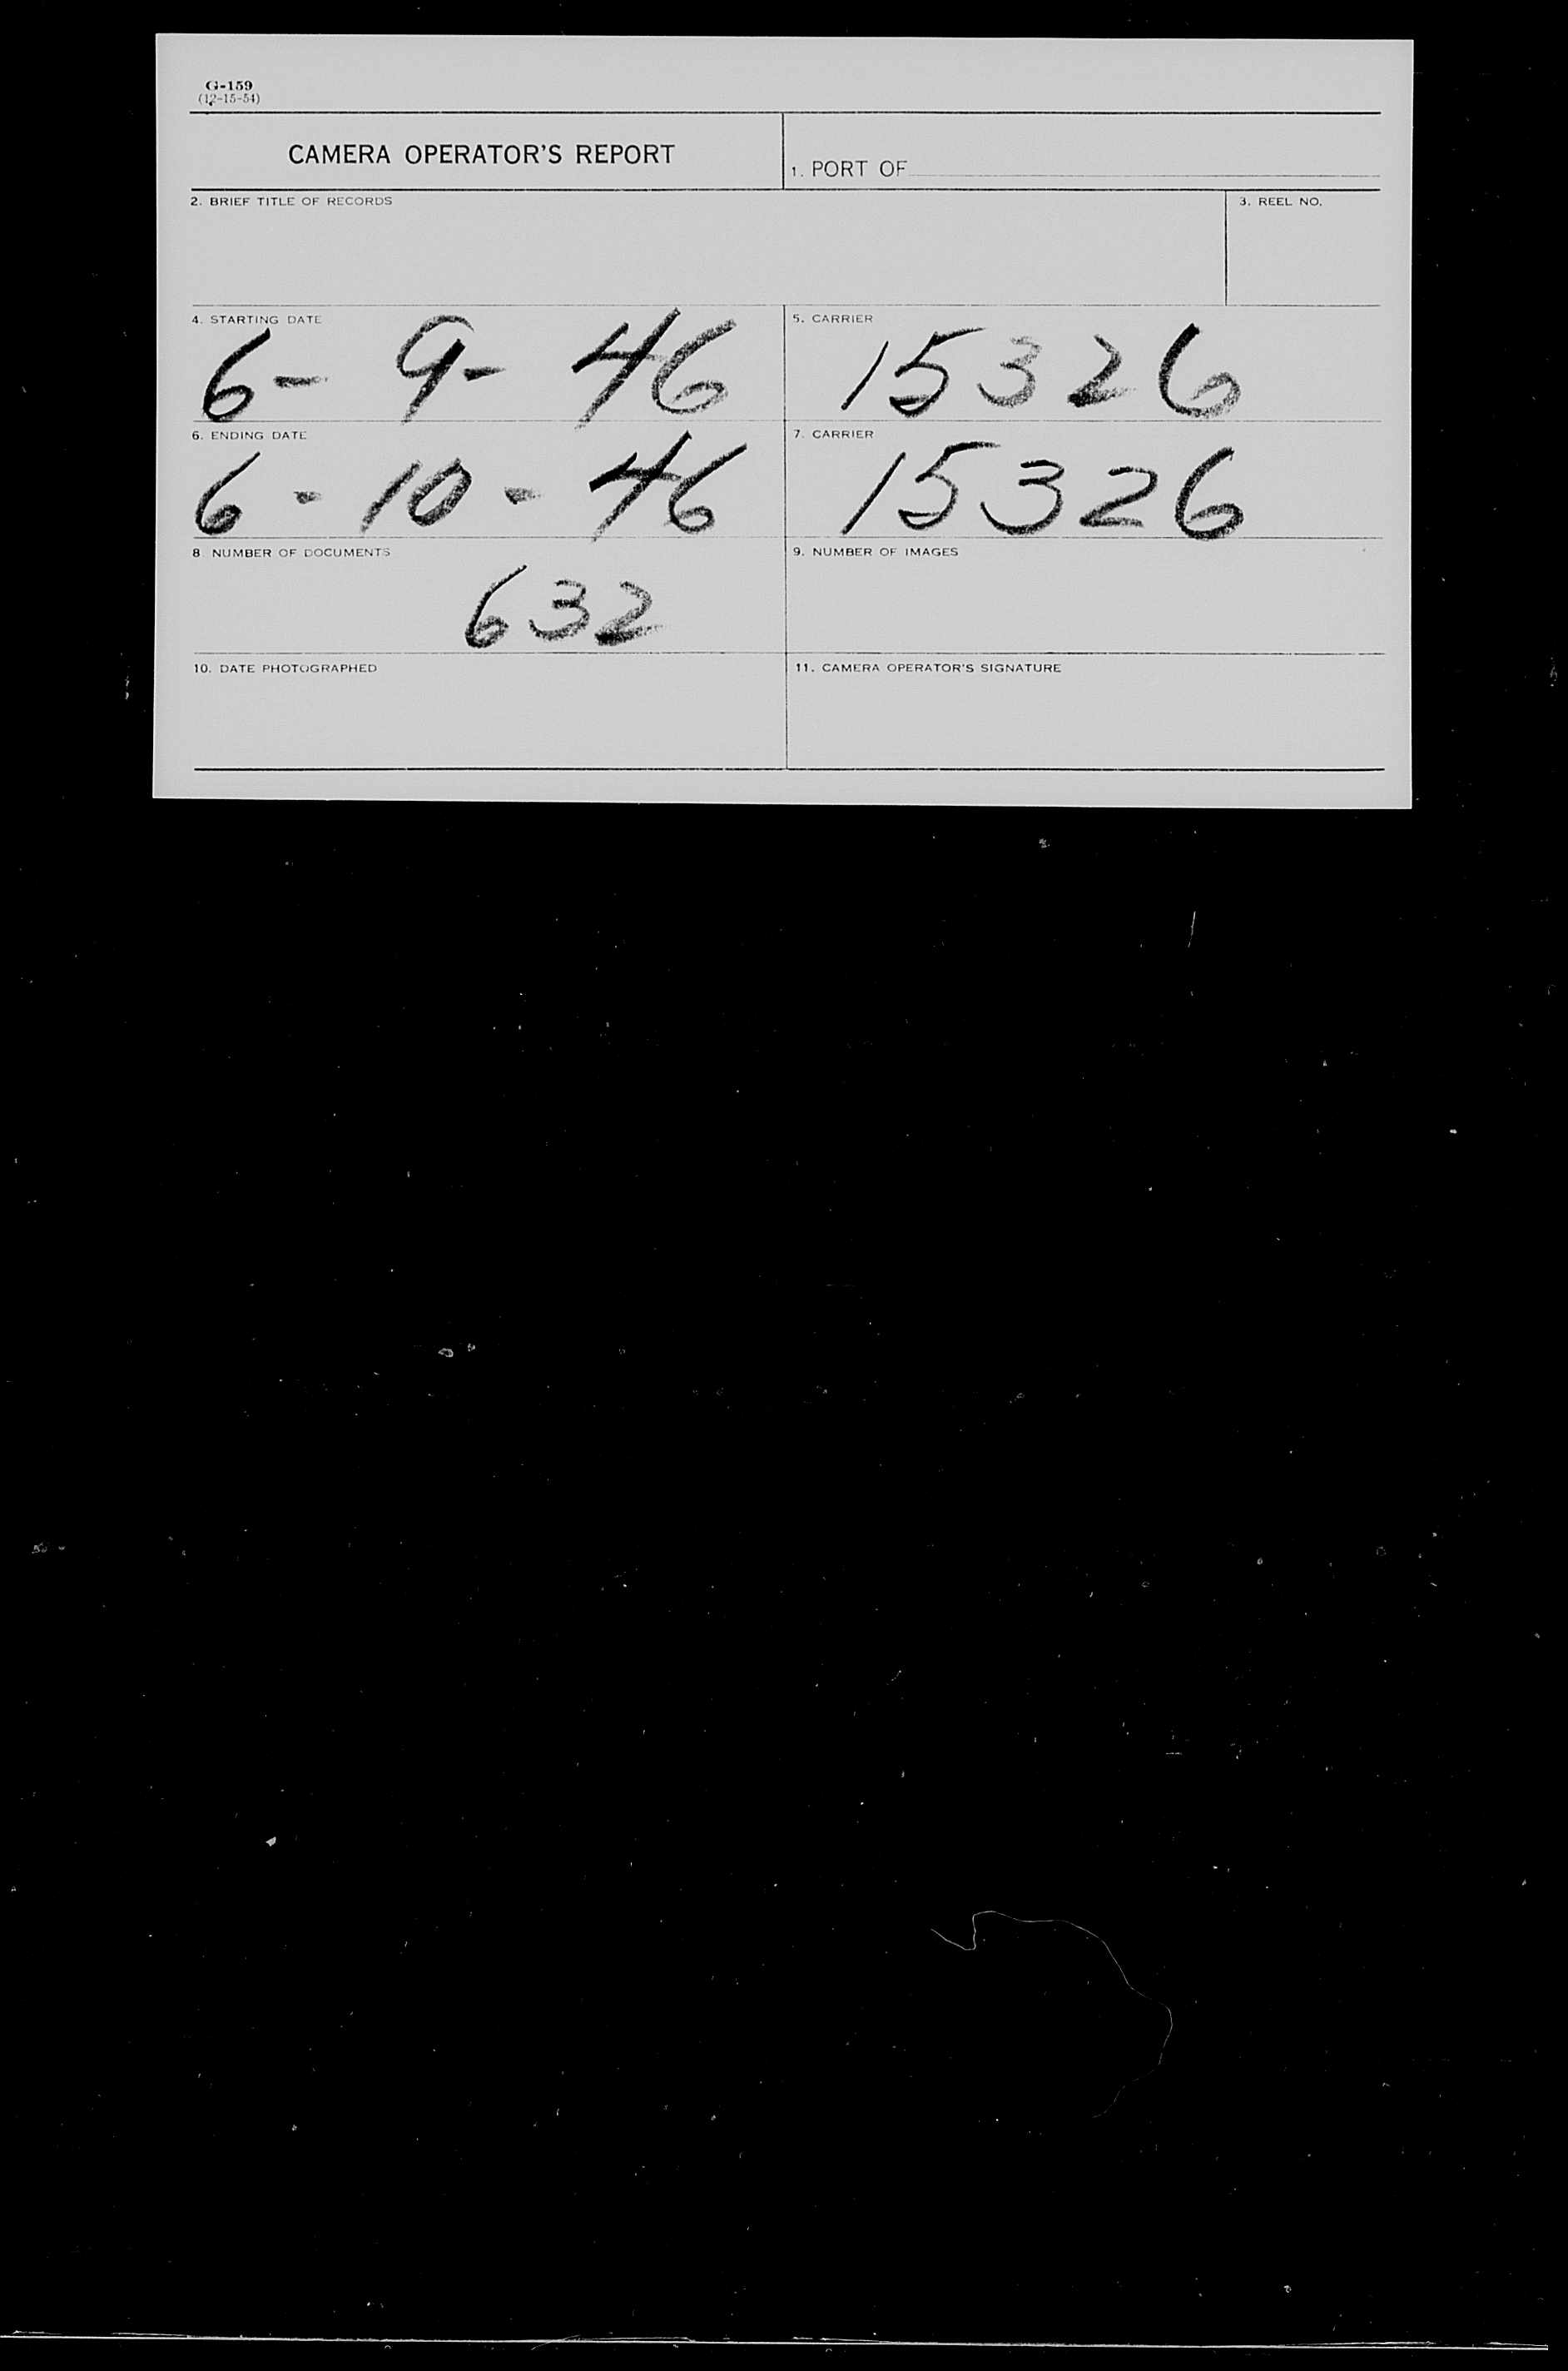 G-159
(12-15-54)
CAMERA OPERATOR'S REPORT
1. PORT OF
2. BRIEF TITLE OF RECORDS
3. REEL NO.
4. STARTING DATE
6- 9- 46
5. CARRIER
15326
6. ENDING DATE
6-10-46
7. CARRIER
15326
8. NUMBER OF DOCUMENTS
632
9. NUMBER OF IMAGES
10. DATE PHOTOGRAPHED
11. CAMERA OPERATOR'S SIGNATURE